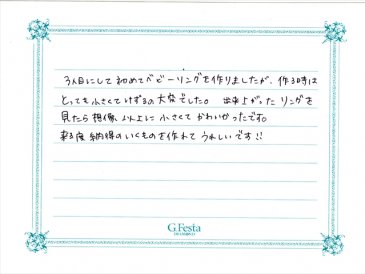 3人目にして初めてベビーリングを作りましたが、作る時は
とっても小さくてけずるの大変でした。出来上がった リングを
見たら想像以上に小さくてかわいかったです。
来る度納得のいくものを作れてうれしいです!!
G.Festa